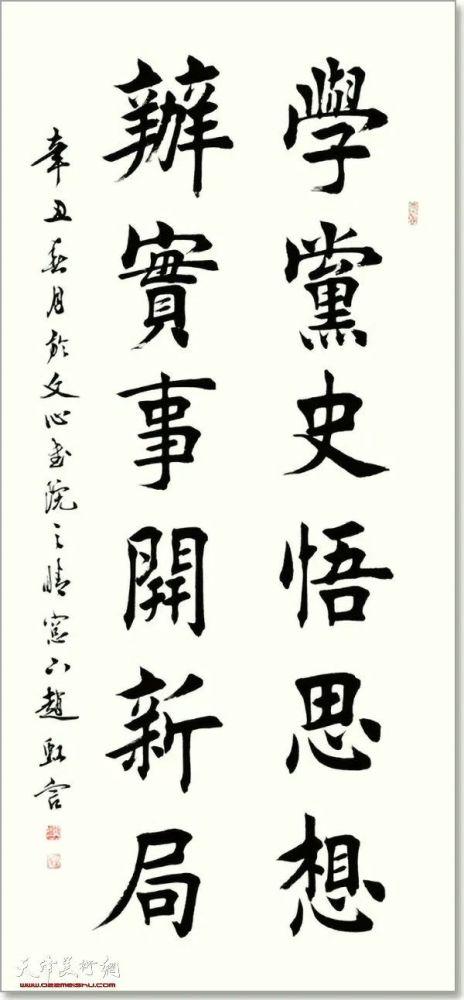 學黨史悟思想
辦實事開新局
辛丑春月於文心書院之晴窗下趙
天津美術網
www.022meishu.com